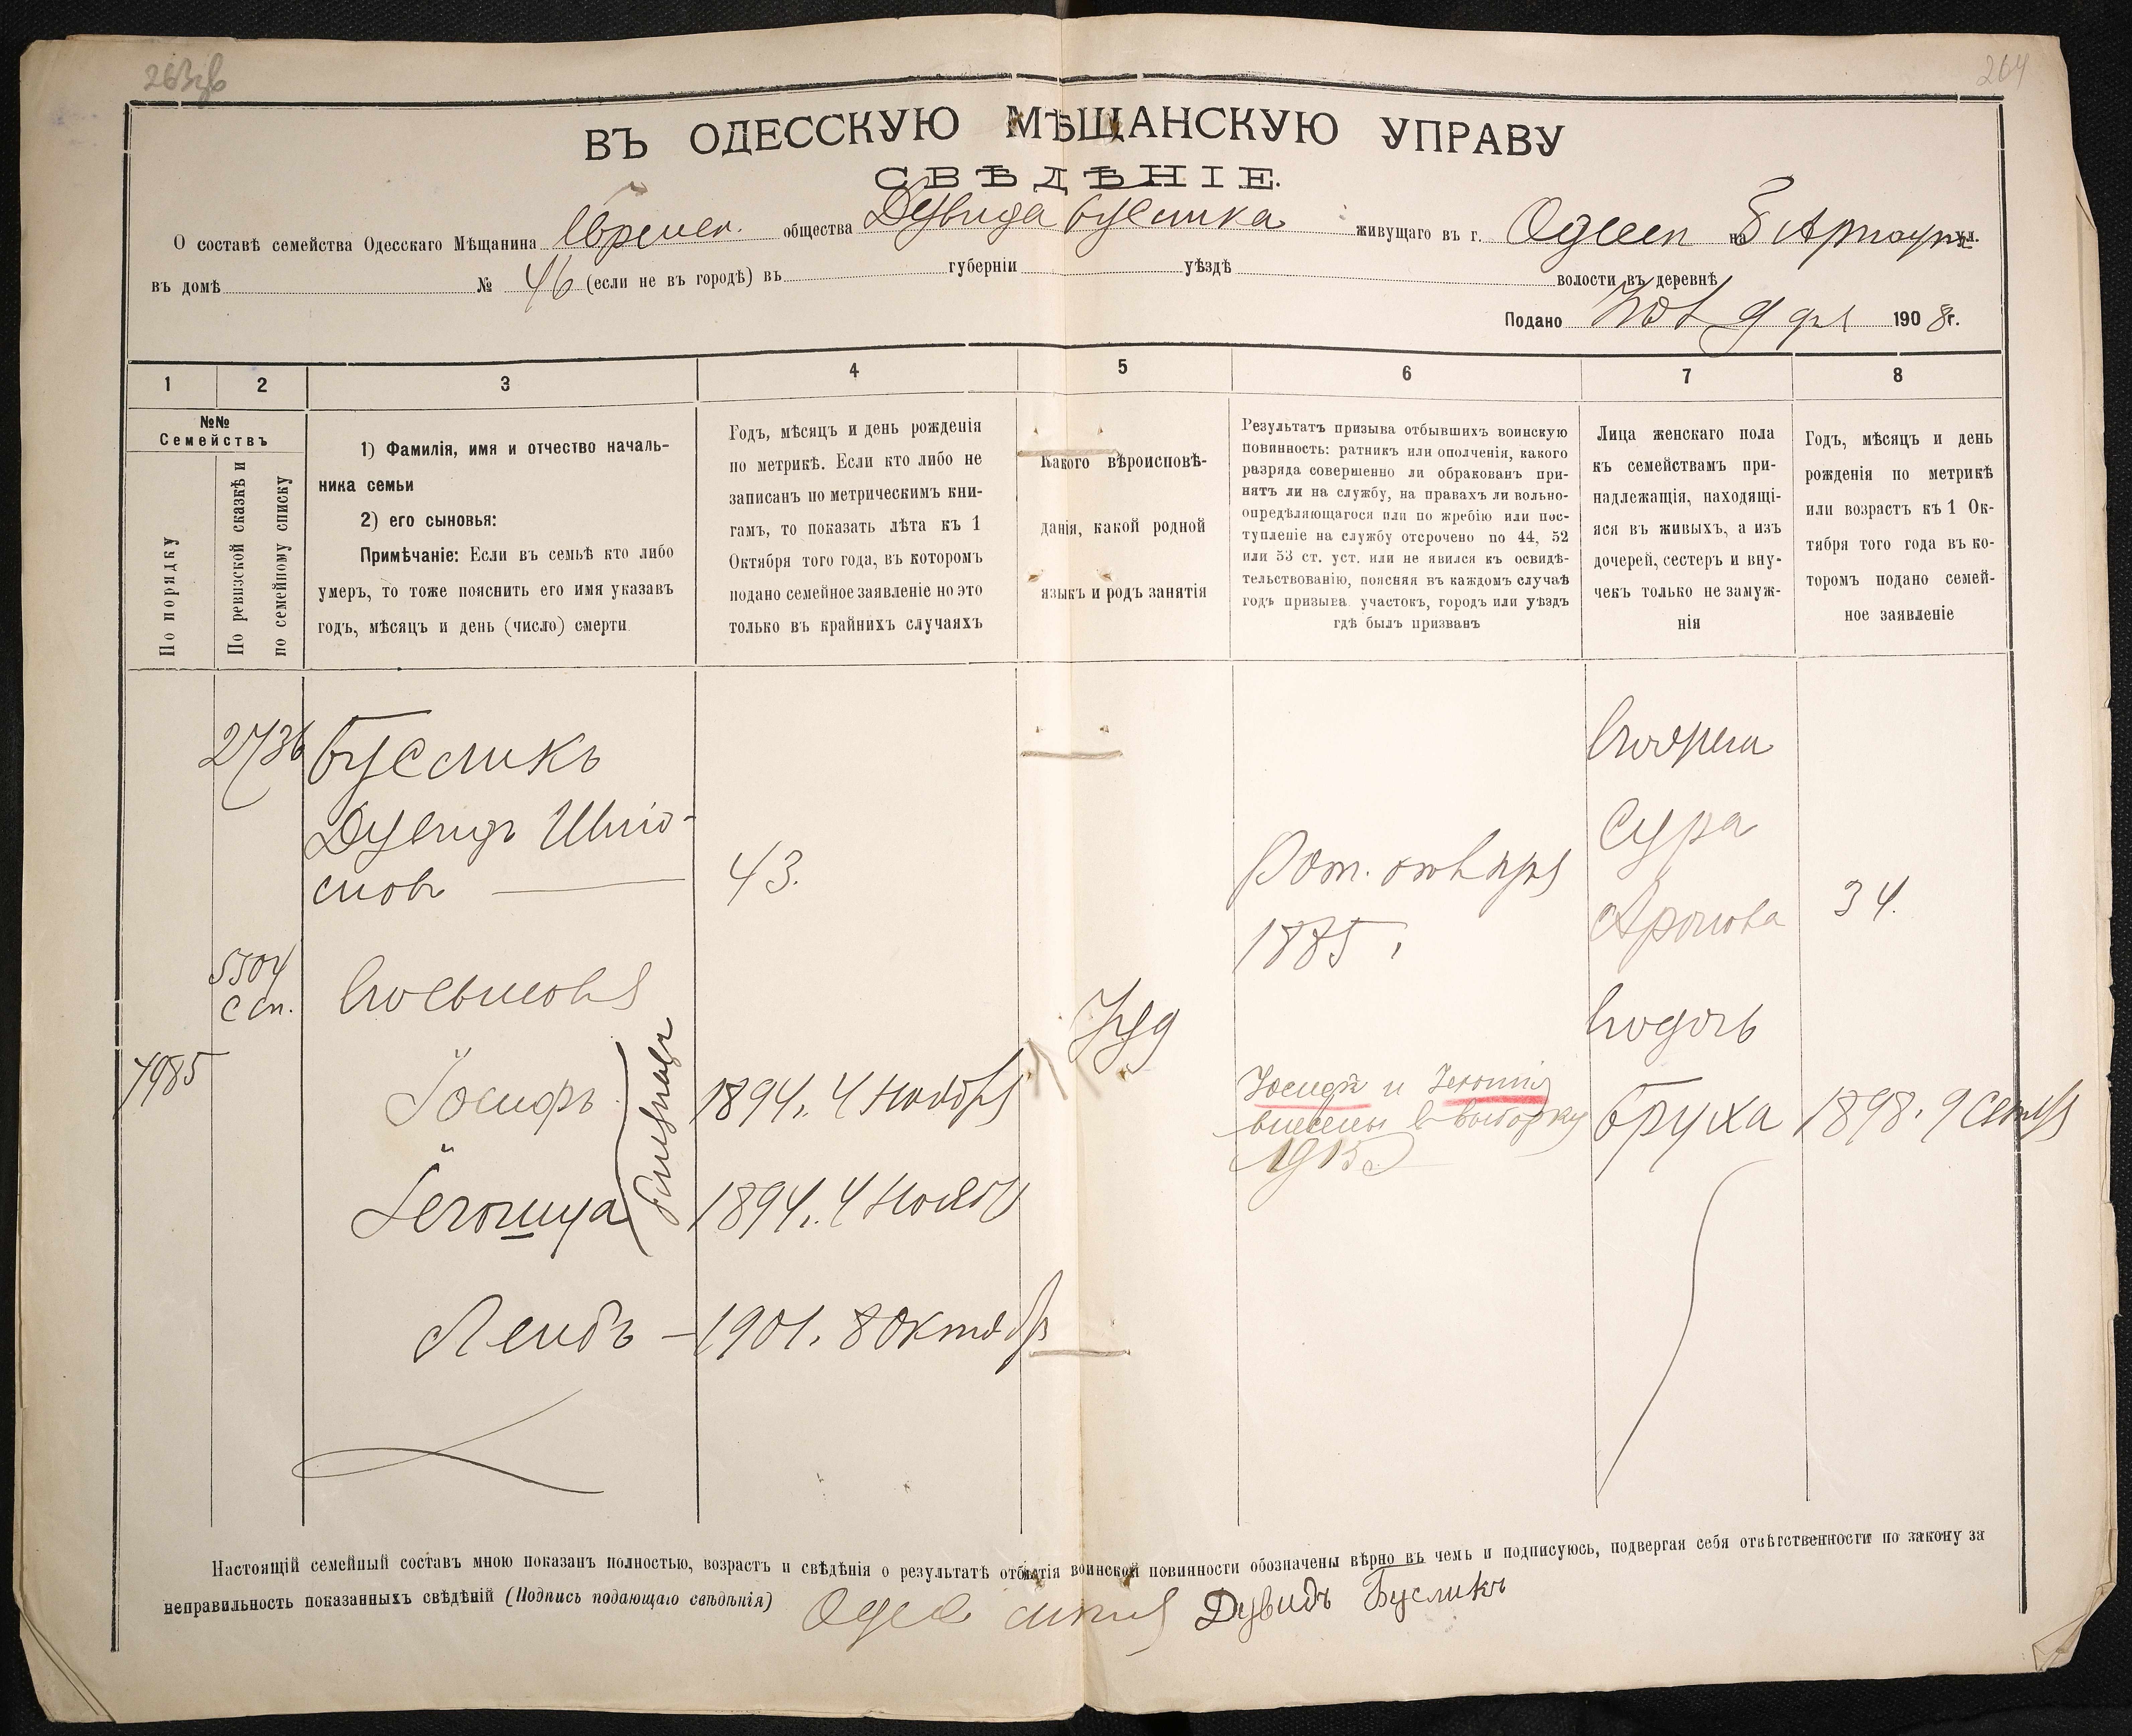 264
ВЪ ОДЕССКУЮ МѢЩАНСКУЮ УПРАВУ
СВѢДѢНІЕ.
О составѣ семейства Одесскаго Мѣщанина Еврейск. общества Дувида Буслика живущаго въ г. Одессѣ на Б Арнаут ул.
въ домѣ № 46 (если не въ городѣ) въ губерніи уѣздѣ волости въ деревнѣ
Подано 9 дня 1908 г.
1 2 3 4 5 6 7 8
№№
Семействъ
По порядку
По ревизской сказкѣ и
по семейному списку
1) Фамилія, имя и отчество началь-
ника семьи
2) его сыновья:
Примѣчаніе: Если въ семьѣ кто либо
умеръ, то тоже пояснить его имя указавъ
годъ, мѣсяцъ и день (число) смерти
Годъ, мѣсяцъ и день рожденія
по метрикѣ. Если кто либо не
записанъ по метрическимъ кни-
гамъ, то показать лѣта къ 1
Октября того года, въ которомъ
подано семейное заявленіе но это
только въ крайнихъ случаяхъ
Какого вѣроисповѣ-
данія, какой родной
языкъ и родъ занятія
Результатъ призыва отбывшихъ воинскую
повинность: ратникъ или ополченія, какого
разряда совершенно ли обракованъ при-
нятъ ли на службу, на правахъ ли вольно-
опредѣляющагося или по жребію или пос-
тупленіе на службу отсрочено по 44, 52
или 53 ст. уст. или не явился къ освидѣ-
тельствованію, поясняя въ каждомъ случаѣ
годъ призыва участокъ, городъ или уѣздъ
гдѣ былъ призванъ
Лица женскаго пола
къ семействамъ при-
надлежащія, находящі-
яся въ живыхъ, а изъ
дочерей, сестеръ и вну-
чекъ только не замуж-
нія
Годъ, мѣсяцъ и день
рожденія по метрикѣ
или возрастъ къ 1 Ок-
тября того года въ ко-
торомъ подано семей-
ное заявленіе
2736 Бусликъ
Дувидъ Шліо-
мовъ 43.
1885
Сура
Аронова 34.
5504
С сп.
Его сыновья
Іуд
Его дочь
7985
Іосифъ 1894. 4 Ноября
Іосифъ и
внесены в выборку
1915
Бруха 1898. 9 Сентяб
близнецы
Іегошуа 1894. 4 Нояб
Лейбъ — 1901. 8 Октябр
Настоящій семейный составъ мною показанъ полностью, возрастъ и свѣдѣнія о результатѣ отбытія воинской повинности обозначены вѣрно въ чемъ и подписуюсь, подвергая себя отвѣтственности по закону за
неправильность показанныхъ свѣдѣній (Подпись подающаго свѣдѣнія) Дувидъ Бусликъ